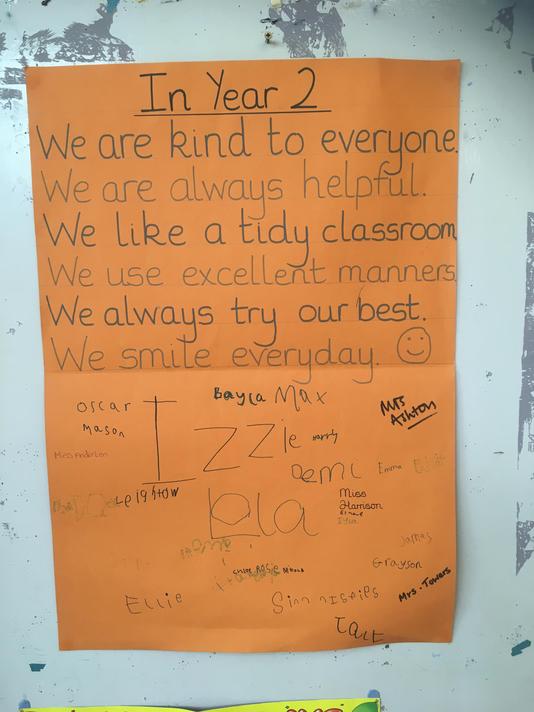 In Year 2
We are kind to everyone.
We are always helpful.
We like a tidy classroom
We use excellent manners.
We always try our best.
We smile everyday.
Oscar
Bayla Max
Mrs
Ashton
Mason
Izzie
Harry
Miss Anderton
Demi
Emma
Leighton
Lola
Miss
Harrison
James
Grayson
Rosie
Ellie
Mrs. Towers